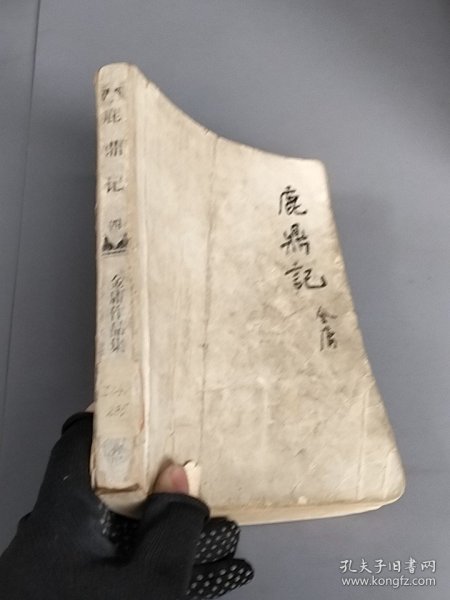 鹿鼎记
四
鹿鼎記
金庸
孔夫子旧书网
www.kongfz.com